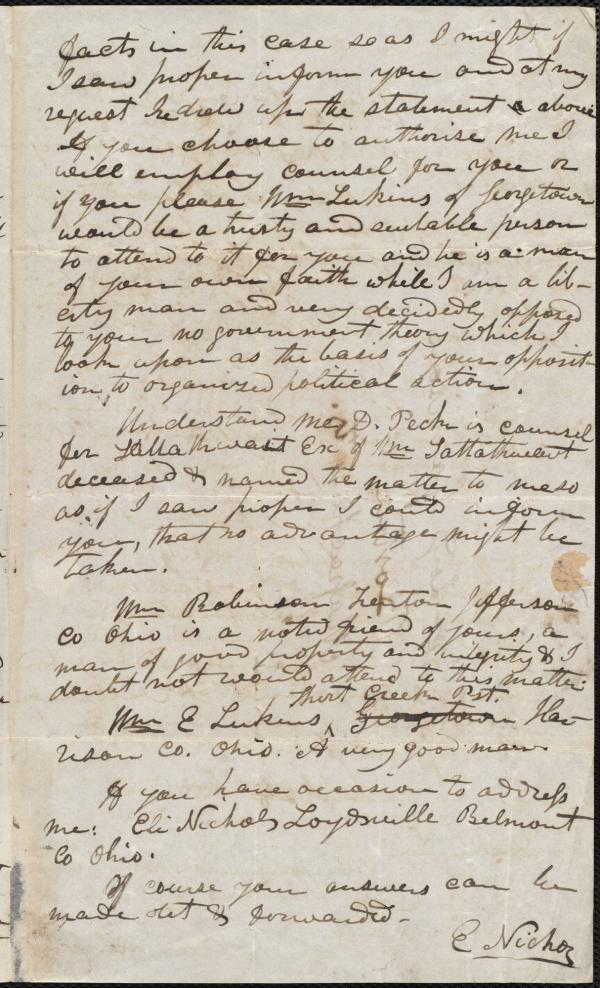 facts in this case so as I might if
I saw proper inform you and at my
request he drew up the statement above
If you choose to authorise me I
will employ counsel for you or
if you please Wm Lukins of Georgetown
would be a trusty and suitable person
to attend to it for you and he is a man
of your own faith while I am a lib-
erty man and very decidedly opposed
to your no government theory which I
look upon as the basis of your opposit-
ion to organized political action.
Understand me, D. Peck is counsel
for Ex of Wm
deceased & named the matter to me so
as if I saw proper I could inform
you, that no advantage might be
taken.
Wm Robinson Jefferson
Co Ohio is a noted friend of yours, a
man of good property and integrity & I
doubt not would attend to this matter.
Short Creek Pst.
Wm E Lukins, Georgetown Har-
rison Co. Ohio. A very good man.
If you have occasion to address
me: Eli Nichols Loydsville Belmont
Co Ohio.
Of course your answers can be
made out & forwarded-
E Nichols